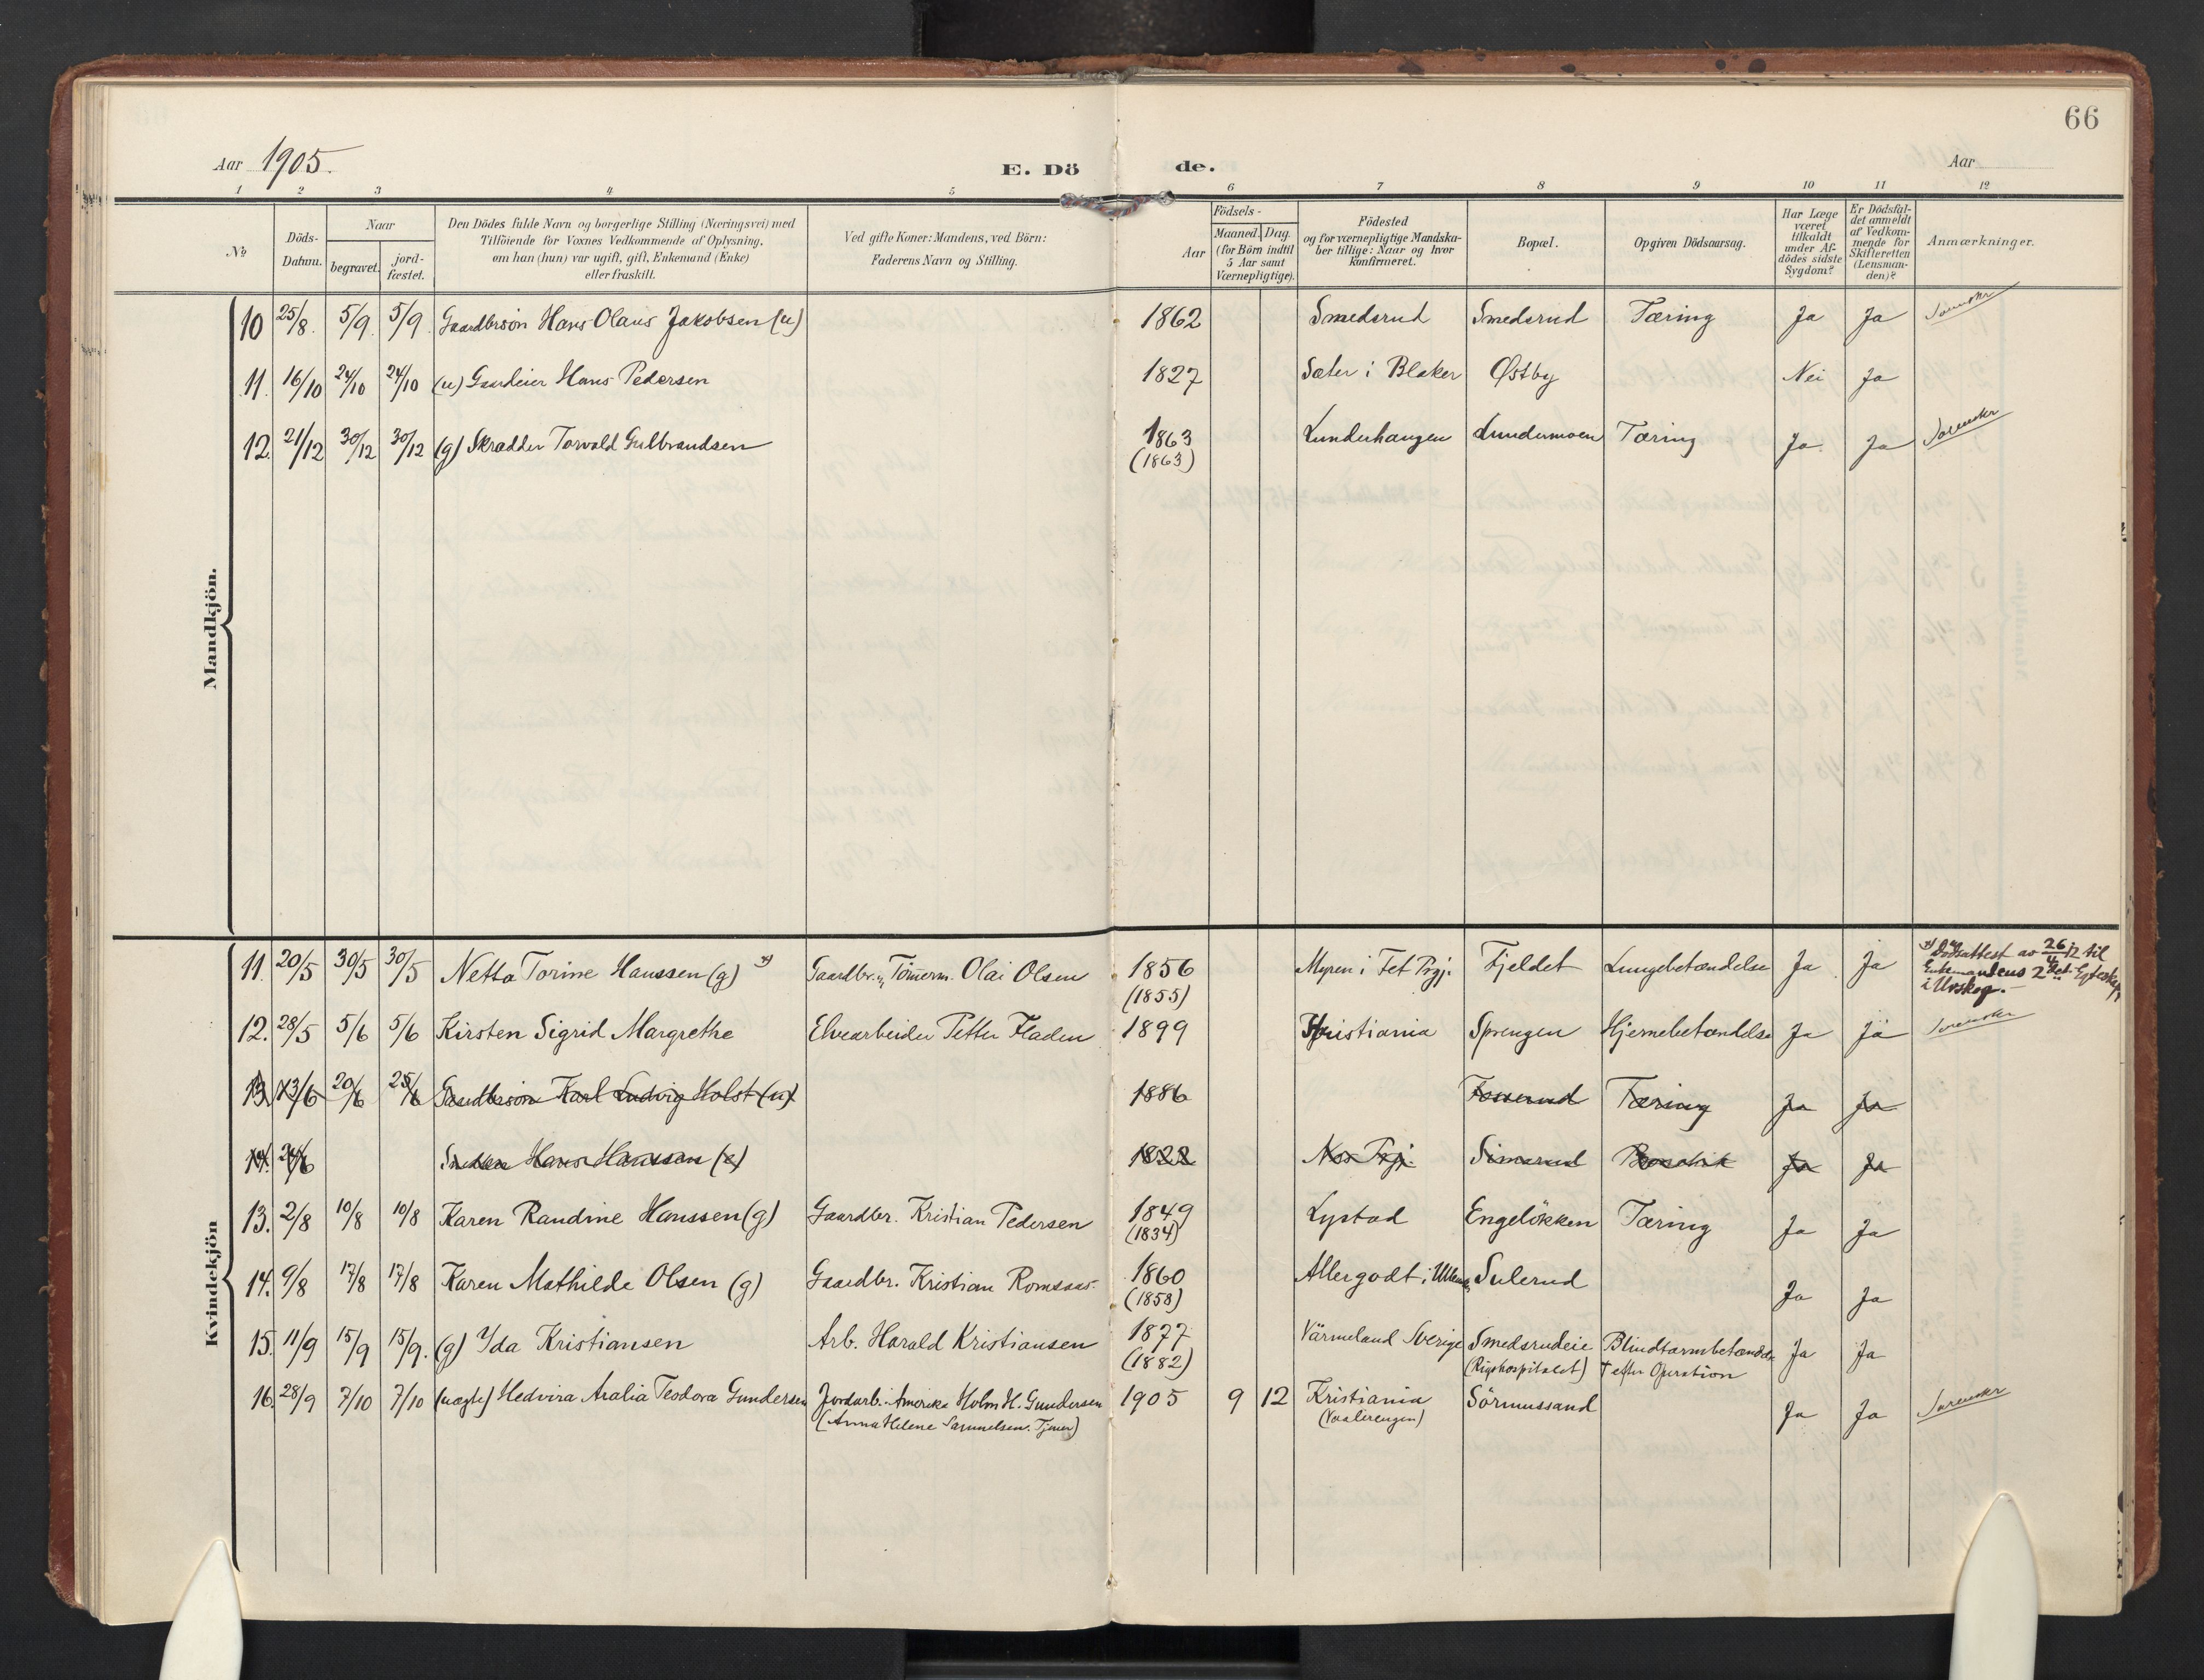 66
Aar 1905.
E. Dö de.
Aar
1 2 3 4 5 6 7 8 9 10 11 12
No
Döds-Datum.
Naar
begravet.
jord-fæstet.
Den Dödes fulde Navn og borgerlige Stilling (Næringsvei) med
Tilföiende for Voxnes Vedkommende af Oplysning,
om han (hun) var ugift, gift, Enkemand (Enke)
eller fraskilt.
Ved gifte Koner: Mandens, ved Börn:
Faderens Navn og Stilling.
Födsels-
Aar
Maaned. Dag.
(for Börn indtil
5 Aar samt
Værnepligtige).
Födested
og for værnepligtige Mandska-
ber tillige: Naar og hvor
konfirmeret.
Bopæl.
Opgiven Dödsaarsag.
Har Læge
været
tilkaldt
under Af-
dödes sidste
Sygdom?
Er Dödsfal-
det anmeldt
af Vedkom-
mende for
Skifteretten
(Lensman-
den)?
Anmærkninger.
Mandkjön.
10 25/8. 5/9. 5/9. Gaardbrsön Hans Olaus Jakobsen (u) 1862 Smedsrud Smedsrud Tæring Ja Ja
11. 16/10 24/10 24/10 (u) Gaardeier Hans Pedersen 1827 Sæter i Blaker Østby Nei Ja
12. 21/12 30/12 30/12 (g) Skrædder Torvald Gulbrandsen 1863 Lunderhaugen Lundermoen Tæring Ja. Ja
(1863)
Kvindekjön
11. 20/5 30/5 30/5 Netta Torine Hanssen (g) x) Gaardbr. Tömerm. Olai Olsen 1856 Myren i Fet Prgj. Fjeldet Lungebetændelse Ja Ja x) Dödsattest av 26/4 12 til
(1855) Enkemandens 2det Egtesk.
i Urskog.
12. 28/5 5/6 5/6 Kirsten Sigrid Margrethe Elvearbeider Petter Fladen 1899 Kristiania Sprengen Hjernebetændelse Ja Ja
13 13/6 20/6 25/6 Gaardbrsön Karl Ludvig Holst (u) 1886 Fosserud Tæring Ja Ja
14. 24/6 Hans Hanssen (e) 1822 Nes Prgj. Simerud Ja Ja
13. 2/8 10/8 10/8 Karen Randine Hanssen (g) Gaardbr. Kristian Pedersen 1849 Lystad Engelökken Tæring Ja Ja
(1834)
14. 9/8 17/8 17/8 Karen Mathilde Olsen (g) Gaardbr. Kristian Romsaas. 1860 Allergodt i Sulerud Ja Ja
(1858)
15. 11/9 15/9 15/9. (g) Yda Kristiansen Arb. Harald Kristiansen 1877 Värmeland Sverige Smedsrudeie Blindtarmbetændelse Ja Ja
(1882) (Rigshospitalet) † efter Operation
16. 28/9 7/10 7/10 (uægte) Hedvira Aralia Teodora Gundersen Jordarb. i Amerika Holm H. Gundersen 1905 9 12 Kristiania Sörmussand Ja Ja
(Anna Helene Samuelsen. Tjener) (Vaalerengen)